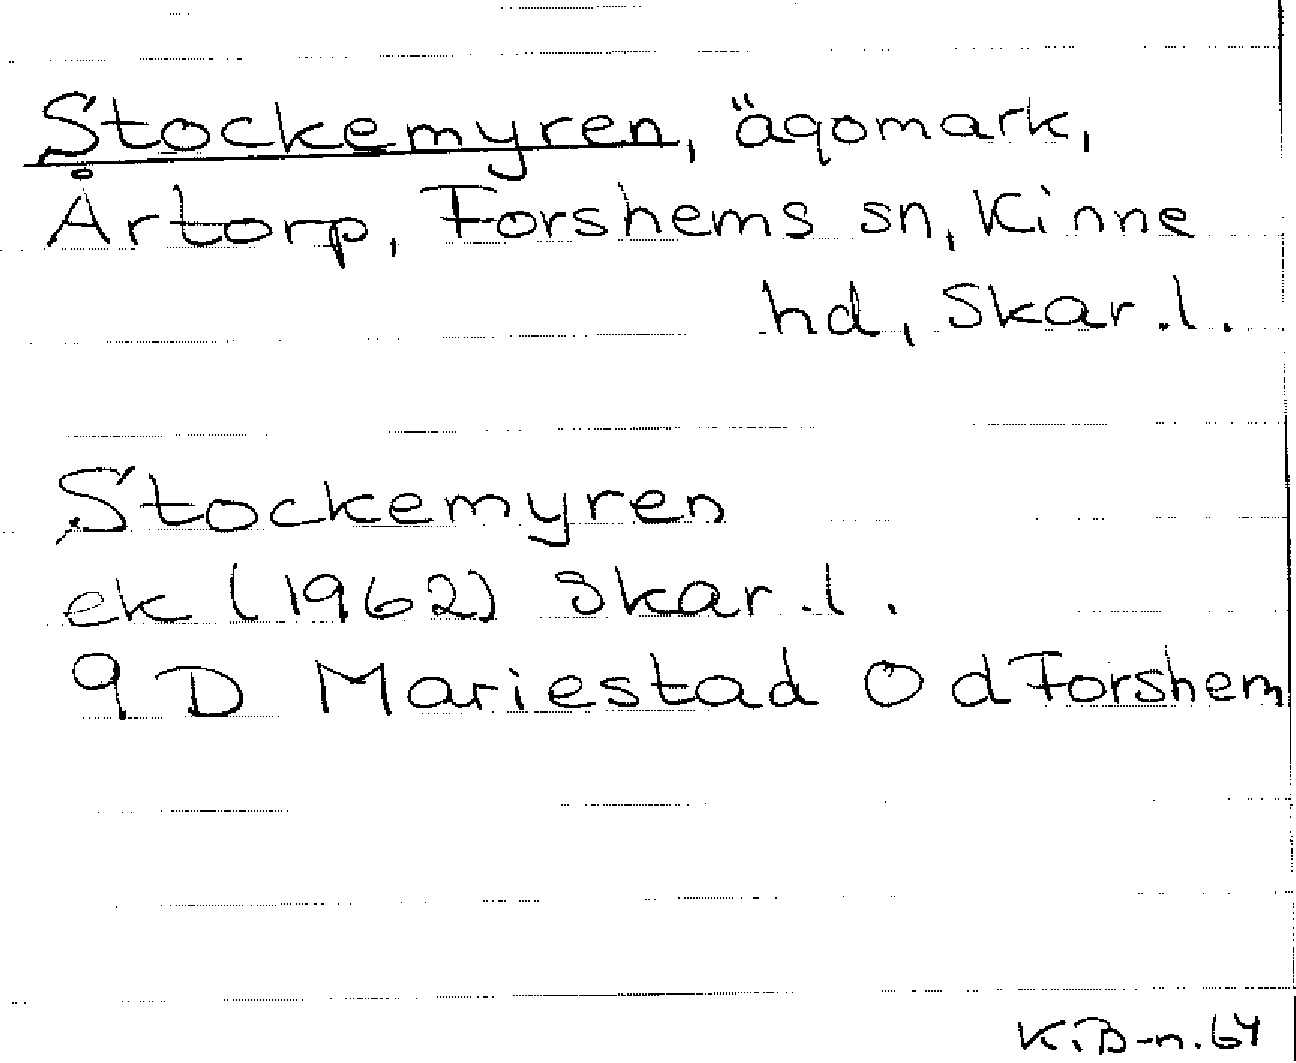 Stockemyren, ägomark,
Årtorp, Forshems sn, Kinne
hd, Skar.l.
Stockemyren
ek (1962) Skar.l.
9 D Mariestad 0 d Forshem
K.B-n. 64